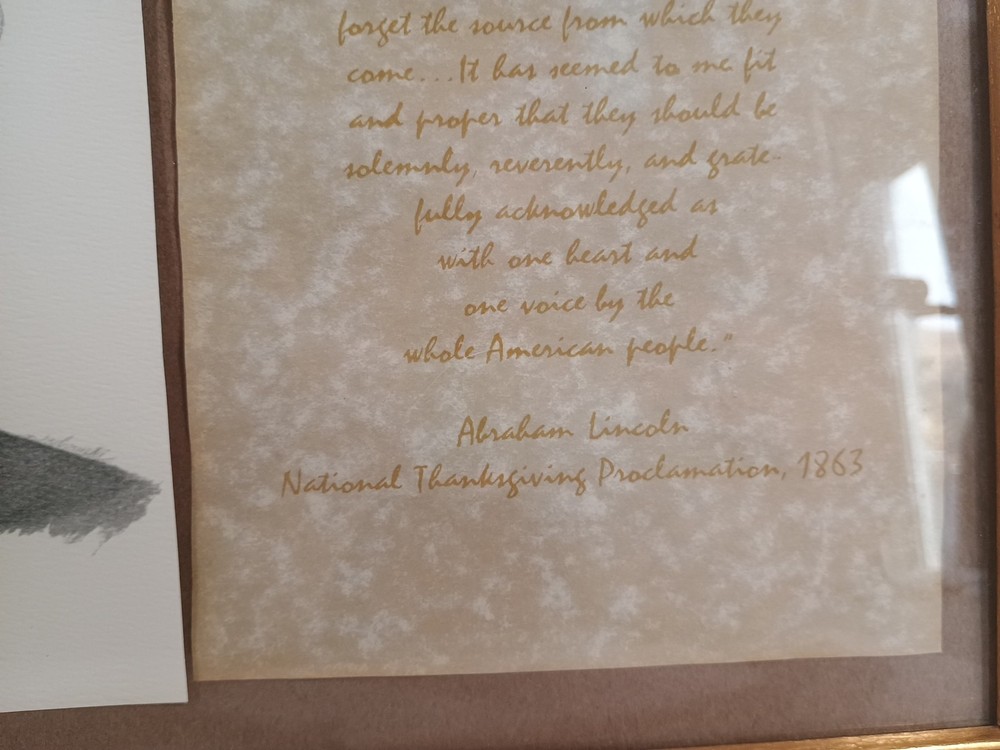 forget the source from which they
come...It has seemed to me fit
and proper that they should be
solemnly, reverently, and grate-
fully acknowledged as
with one heart and
one voice by the
whole American people."
Abraham Lincoln
National Thanksgiving Proclamation, 1863